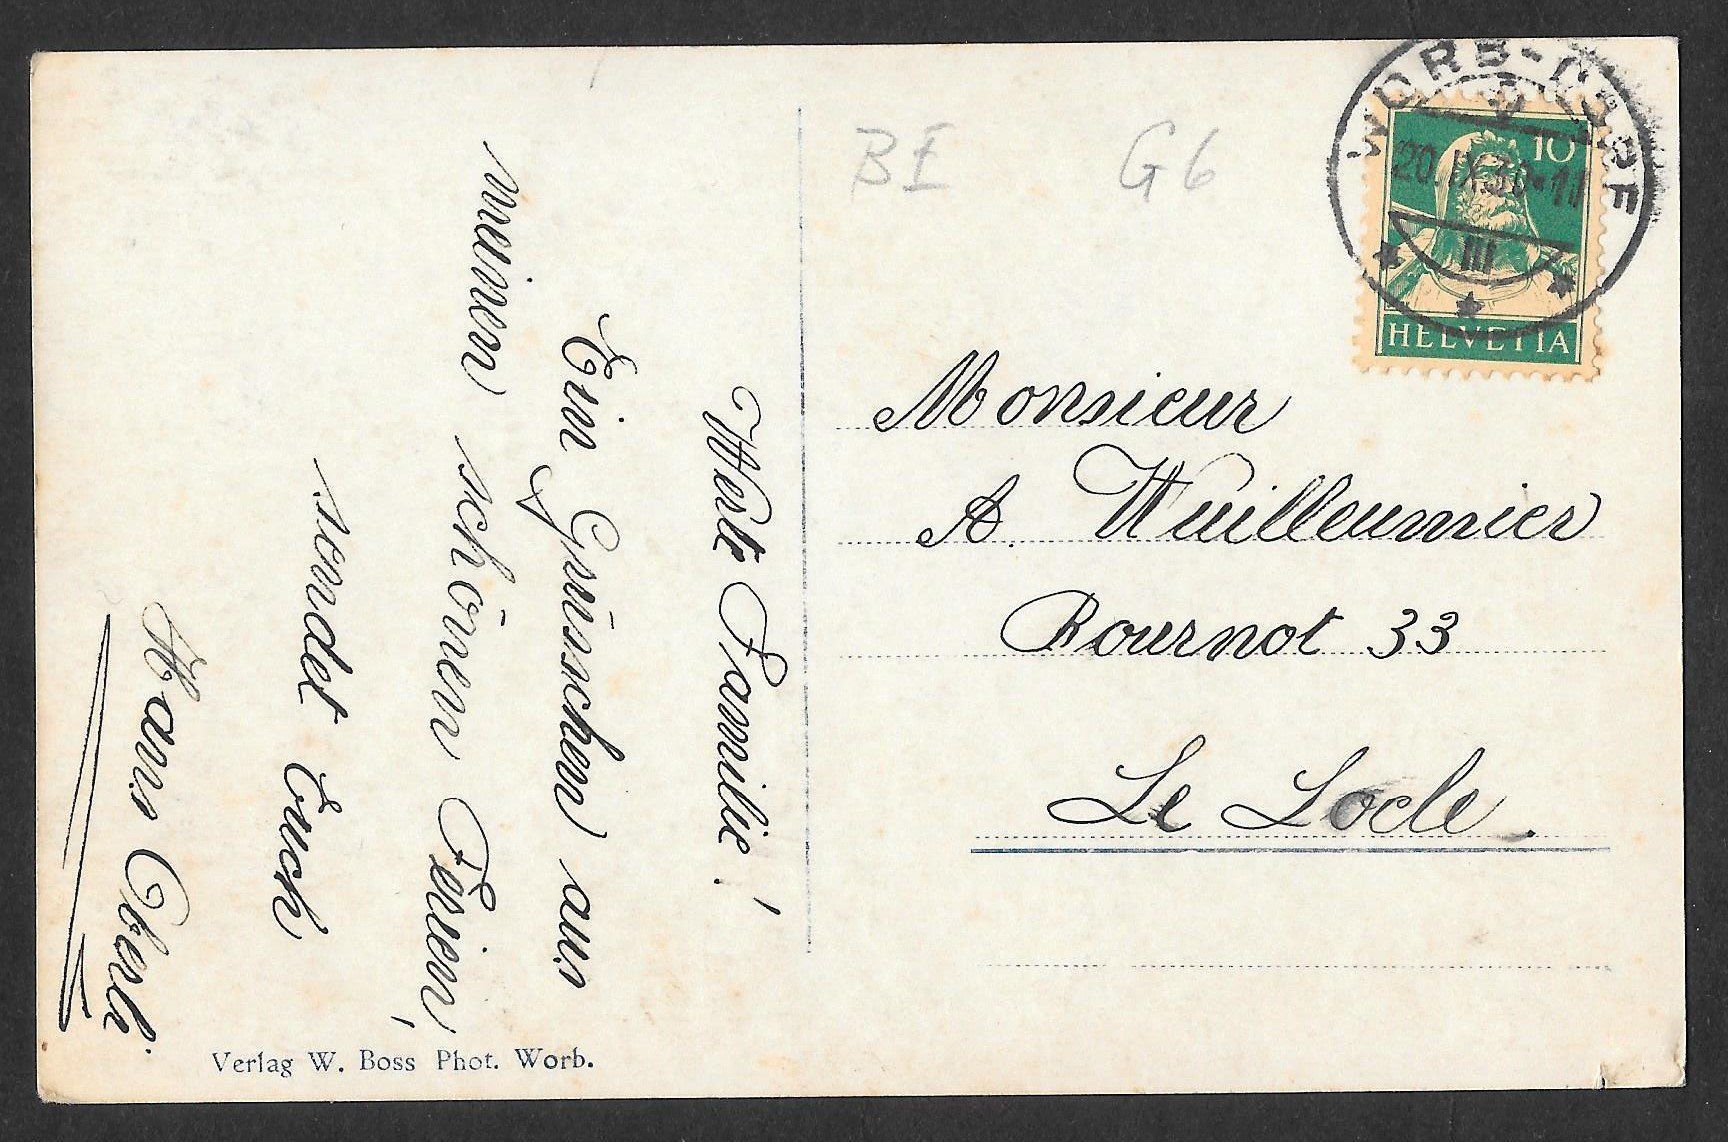 Werte Familie!
Ein Grüsschen aus
meinen schönen Ferien,
sendet Euch
Hans Oberli
Verlag W. Boss Phot. Worb.
BE G6
WORB-DORF
20.IX.30-11
III
10
HELVETIA
Monsieur
A. Wuilleumier
Bournot 33
Le Locle.